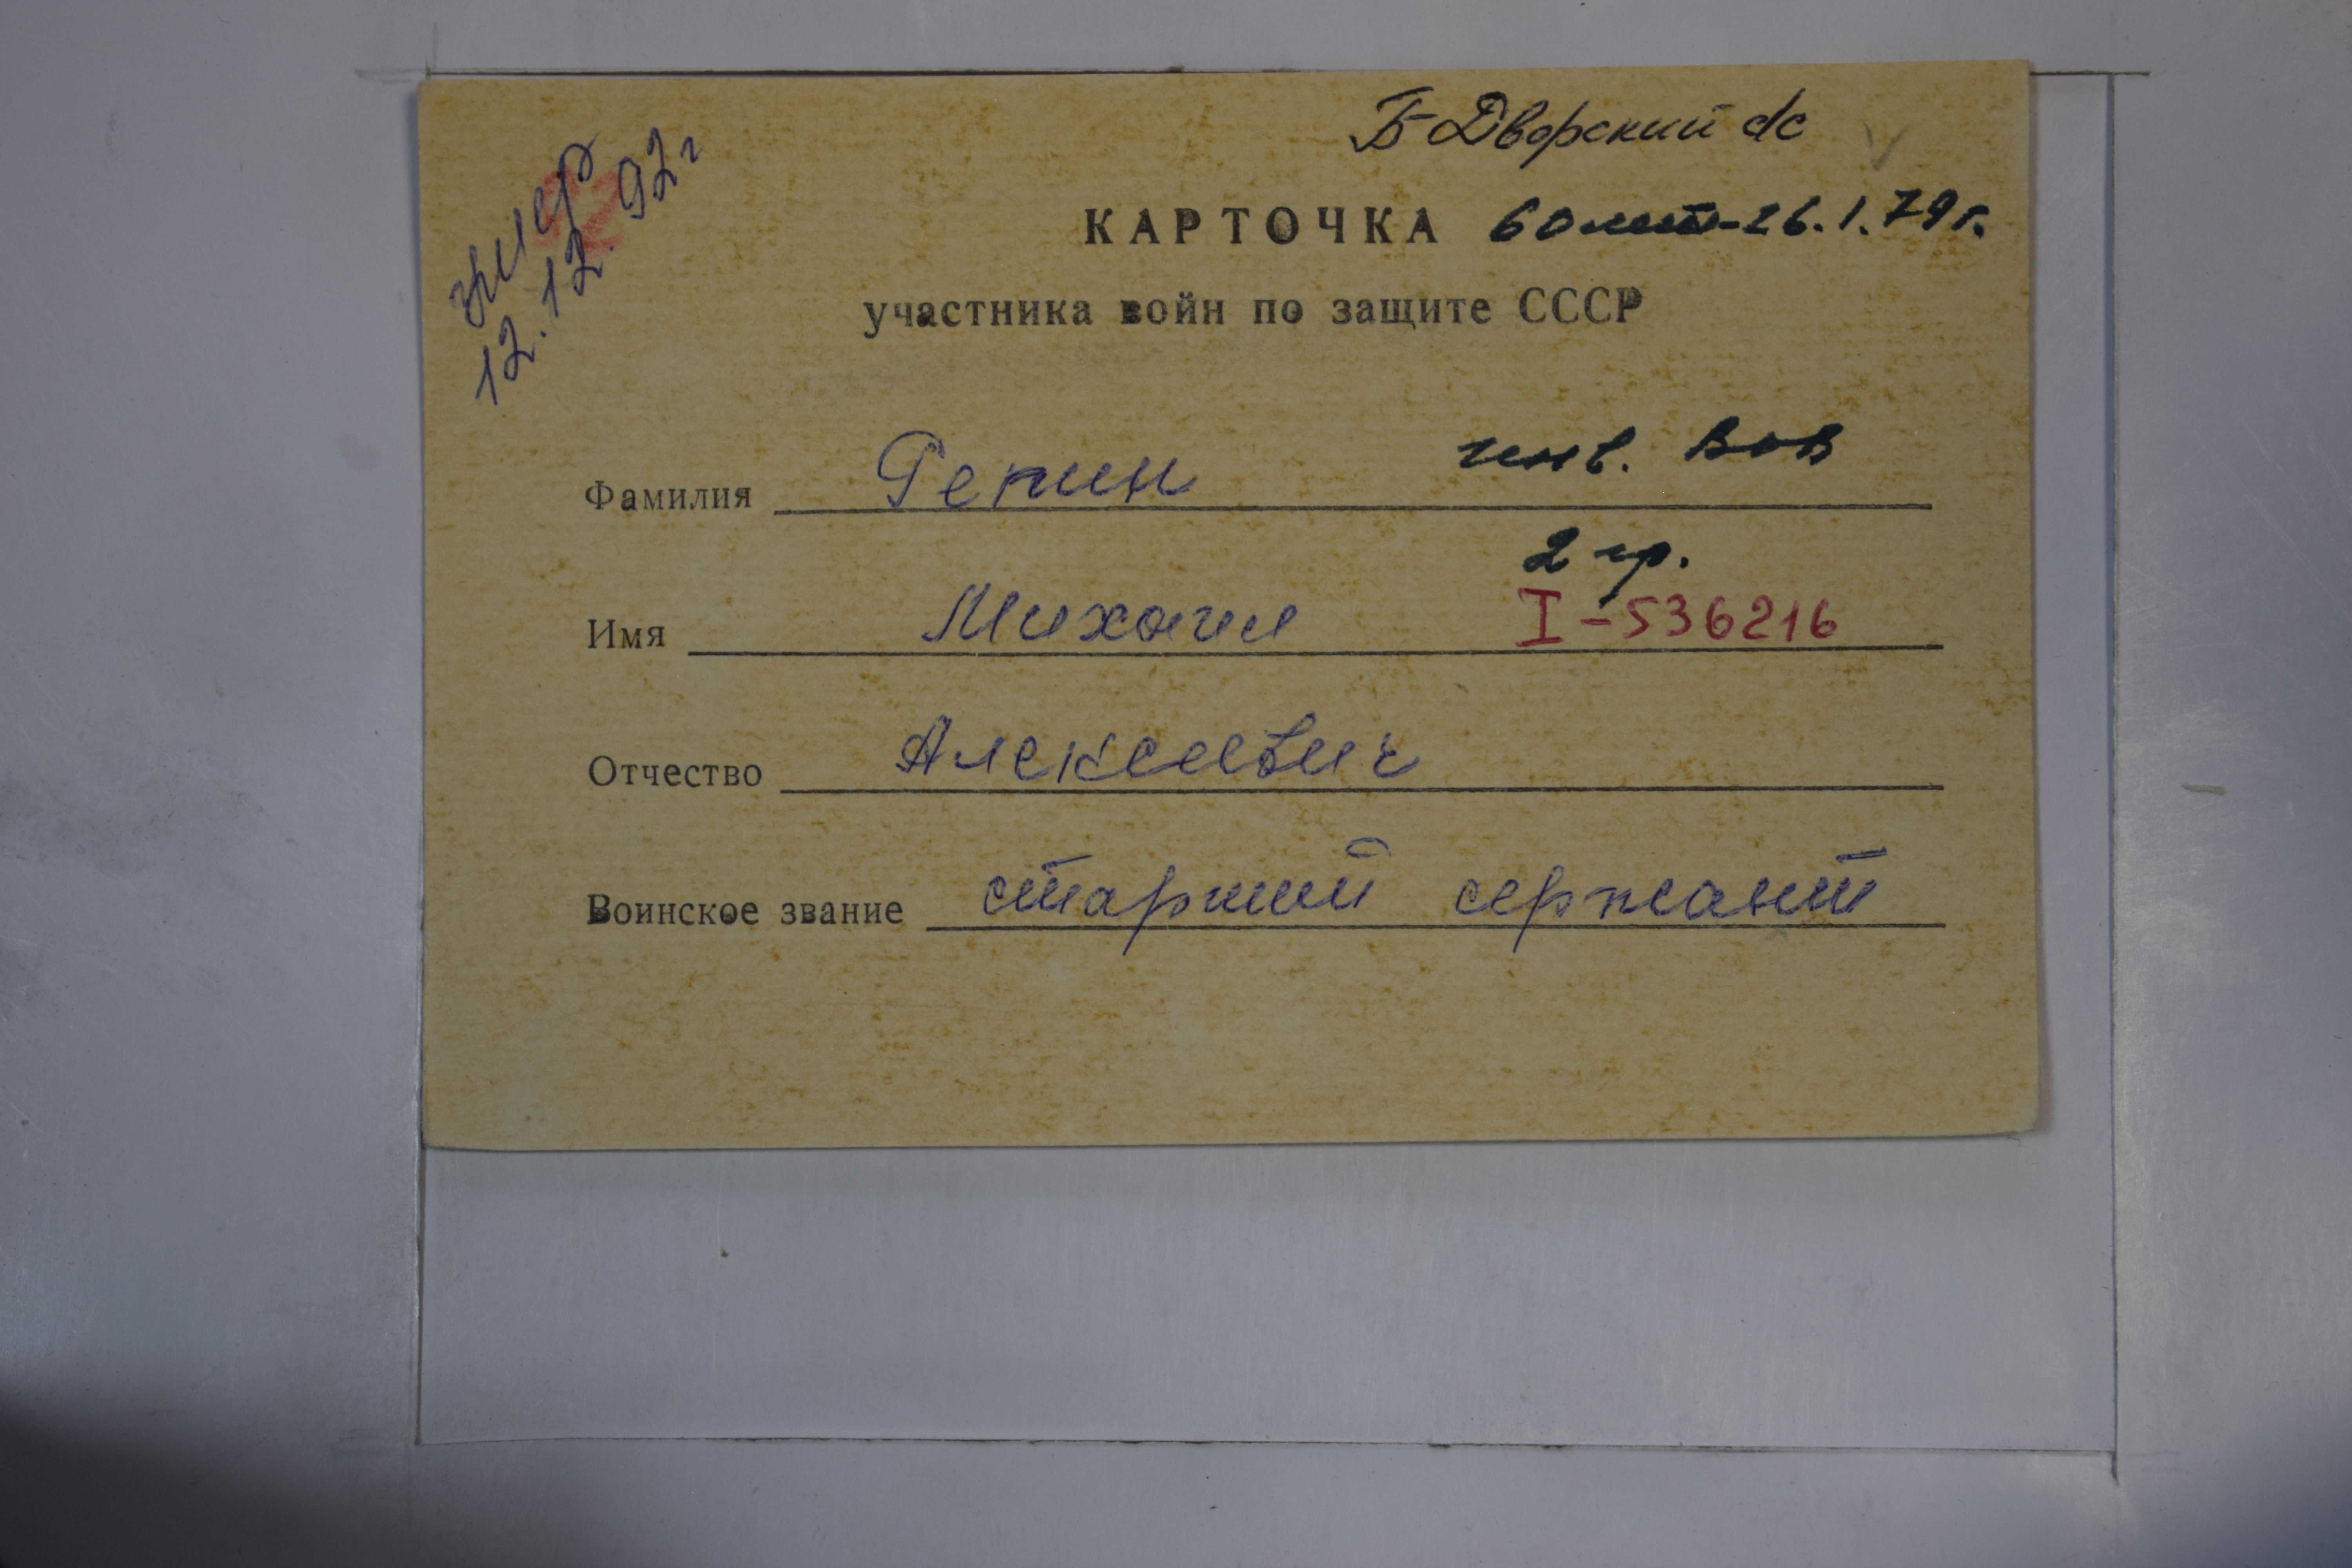 Б-Дворский с/с
умер
12.12.92г
КАРТОЧКА 60 лет-26.1.79г.
участника войн по защите СССР
Фамилия Репин инв. ВОВ
2 гр.
Имя Михаил I-536216
Отчество Алексеевич
Воинское звание старший сержант